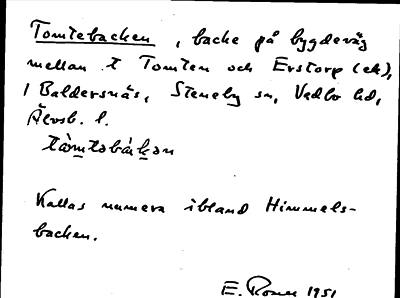 Tomtebacken, backe på bygdeväg
mellan t Tomten och Erstorp (ek),
1 Baldersnäs, Steneby sn, Vedbo hd,
Älvsb. l.
tàmtabákan
Kallas numera ibland Himmels-
backen.
E. Rosen 1951